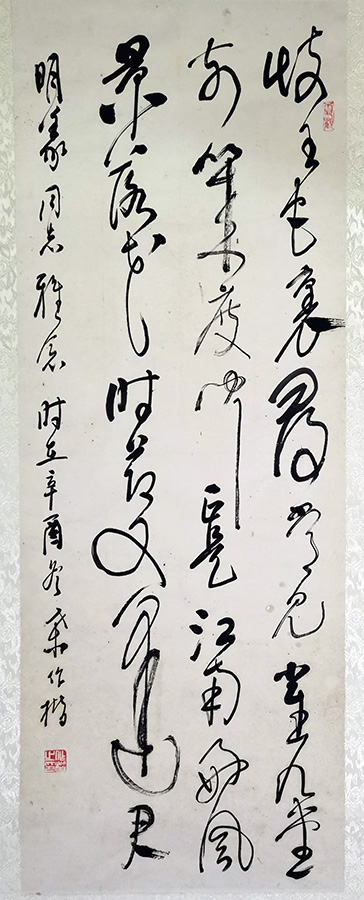 岐王宅里寻常见崔九堂
前几度闻正是江南好风
景落花时节又逢君
明象同志雅念 时在辛酉冬 叶作楷